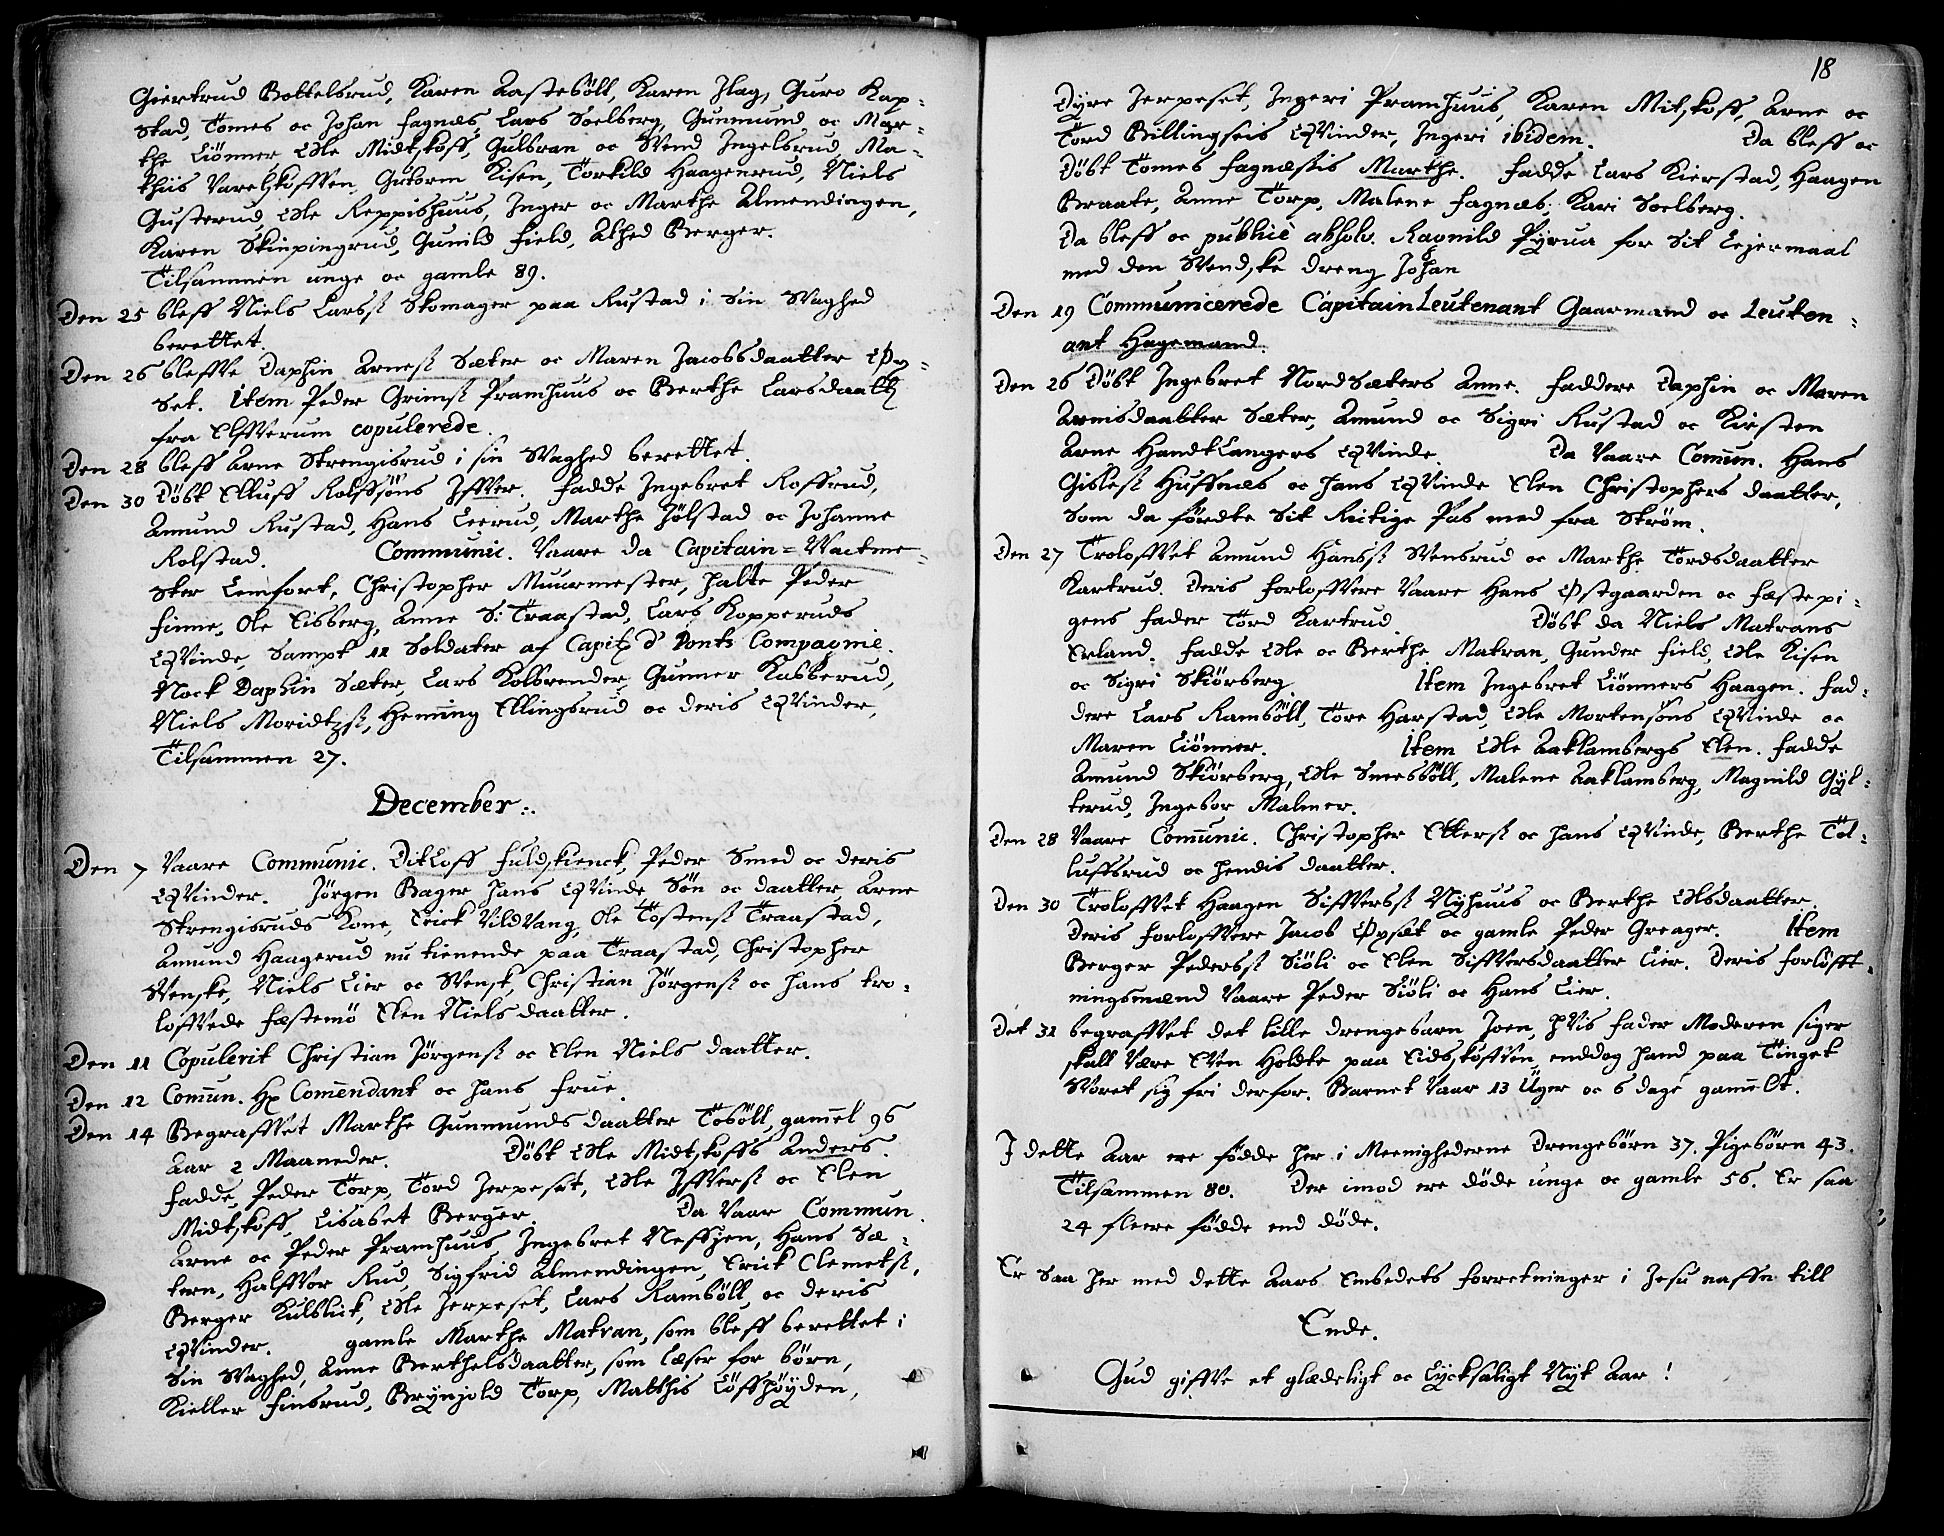 Giertrud Bottelsrud, Karen Aastebøll, Karen Flag, Guro Kap-
stad, Tomes oc Johan fagnæs, Lars Soelberg, Gunmund oc Mar-
the Liønner Ole Midtskoff, Gulbran oc Svend Ingelsrud, Ma-
this Varelskoffven, Gutorm Kisen, Torkild Haagenrud, Niels
Gusterud, Ole Reppishuus, Inger oc Marthe Almendingen,
Karen Skinpingrud, Gunild field, Athed Berger.
Tilsammen unge oc gamle 89.
Den 25 bleff Niels Larsß Skomager paa Rustad i Sin Svaghed
berettet.
Den 26 bleffve Daphin Arnesß Sæter oc Maren Jacobsdaatter Øy-
set. Item Peder Grimsß Pramhuus oc Berthe Larsdaatt
fra Elfverum copulerede.
Den 28 bleff Arne Strengisrud i sin Svaghed berettet.
Den 30 Døbt Elluff Rolffsøns Iffver. Fadde Ingebret Roffrud,
Amund Rustad, Hans Leerud, Marthe Jølstad oc Johanne
Rolstad. Communic. Vaare da Capitain=Vactme-
ster Lemfort, Christopher Muurmester, halte Peder
finne, Ole Eisberg, Anne S: Traastad, Lars Kopperuds
Qvinde, Sampt 11 Soldater af Capit d' Ponts Compagnie.
Nock Daphin Sæter, Lars Kolbrender, Gunner Kasserud,
Niels Moridtzß, Henning Ellingsrud oc deris Qvinder,
Tilsammen 27.
December:.
Den 7 Vaare Communic. Ditloff fuldskienck, Peder Smed oc deris
Qvinder. Jørgen Bager hans Qvinde Søn oc daatter Arne
Strengisruds Kone, Erick Vildvang, Ole Tostensß Traastad,
Amund Haagerud nu tienende paa Traastad, Christopher
Svenske, Niels Lier oc Svensk, Christian Jørgensß oc hans tro-
loffvede fæstemø Elen Nielsdaatter.
Den 11 Copulerit Christian Jørgensß oc Elen Niels daatter.
Den 12 Comun. Hr Comendant oc hans frue.
Den 14 Begraffvet Marthe Gunmunds daatter Tobøll, gamel 96
Aar 2 Maaneder. Døbt Ole Midtskoffs Anders.
Fadde, Peder Torp, Tord Jerpeset, Ole Iffversß oc Elen
Midtskoff, Lisabet Berger. Da Vaar Commun.
Arne oc Peder Pramhuus, Ingebret Neffjen, Hans Sæ-
tern, Halffvor Rud, Sigfrid Almendingen, Erick Clemetsß,
Berger Kulblik, Ole Jerpeset, Lars Rambøll, oc deris
Qvinder. gamle Marthe Matran, som bleff berettet i
Sin Svaghed, Anne Berthelsdaatter, som læser for børn,
Kieller Finsrud, Brynjold Torp, Matthis Løffhøyden,
18
Dyre Jerpeset, Ingeri Pramhuus, Karen Mitskoff, Arne oc
Tord Billingseis Qvinder, Ingeri ibidem. Da bleff oc
Døbt Tomes fagnæssis Marthe. Fadde Lars Kierstad, Haagen
Braate, Anne Torp, Malene fagnæs, Kari Soelberg.
Da bleff oc publicè absolv. Ragnild Pyrua for Sit Lejermaal
med den Svendske dreng Johan
Den 19 Communicerede CapitainLeutenant Gaarmand oc Leuten-
ant Hagemand.
Den 26 Døbt Ingebret NordSæters Anne. Faddere Daphin oc Maren
Arnisdaatter Sæter, Amund oc Sigri Rustad oc Kirsten
Arne Handtlangers Qvinde. Da Vaare Comun. Hans
Gislesß Huffnæs oc hans Qvinde Elen Christophers daatter,
Som da førdte Sit Rictige Pas med fra Strøm.
Den 27 Troloffvet Amund Hansß Svensrud oc Marthe Tordsdaatter
Kartrud. Deris Forloffvere Vaare Hans Østgaarden oc fæstepi-
gens fader Tord Kartrud. Døbt da Niels Matrans
Erland. Fadde Ole oc Berthe Matran, Gunder field, Ole Kisen
oc Sigri Skiørberg. Item Ingebret Liønners Haagen. Fad-
dere Lars Rambøll, Tore Harstad, Ole Mortensøns Qvinde oc
Maren Liønner. Item Ole Aaklambergs Elen. Fadde
Amund Skiørberg, Ole Smesbøll, Malene Aaklamberg, Magnild Gyl-
terud, Ingebor Malmer.
Den 28 Vaare Comunic. Christopher Ottersß oc hans Qvinde, Berthe Tol-
luffsrud oc hendis daatter.
Den 30 Troloffvet Haagen Siffversß Nyhuus oc Berthe Olsdaatter.
Deris forloffvere Jacob Øyset oc gamle Peder Greager. Item
Berger Pedersß Siøli oc Elen Siffversdaatter Lier. Deris forløfft-
ningsmænd Vaare Peder Siøli oc Hans Lier.
Det 31 begraffvet det lille drengebarn Joen, hvis fader Moderen siger
skall Være Even Holdte paa Eidskoffven, enddog hand paa Tinget
Svoret sig fri derfor. Barnet Vaar 13 Uger oc 6 dage gamelt.
I dette Aar ere fødde her i Meenighederne Drengebørn 37. Pigebørn 43.
Tilsammen 80. Der imod ere døde unge oc gamle 56. Er saa
24 fleere fødde end døde.
Er saa her med dette Aars Embedets forretninger i Jesu naffn till
Ende.
Gud giffve et glædeligt oc Lycksaligt Nyt Aar!